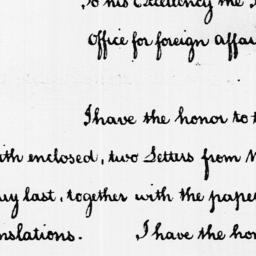 To his Excellency the
Office for foreign affai
I have the honor to t
ith enclosed, two Letters from
ry last, together with the pape
nslations. I have the hon